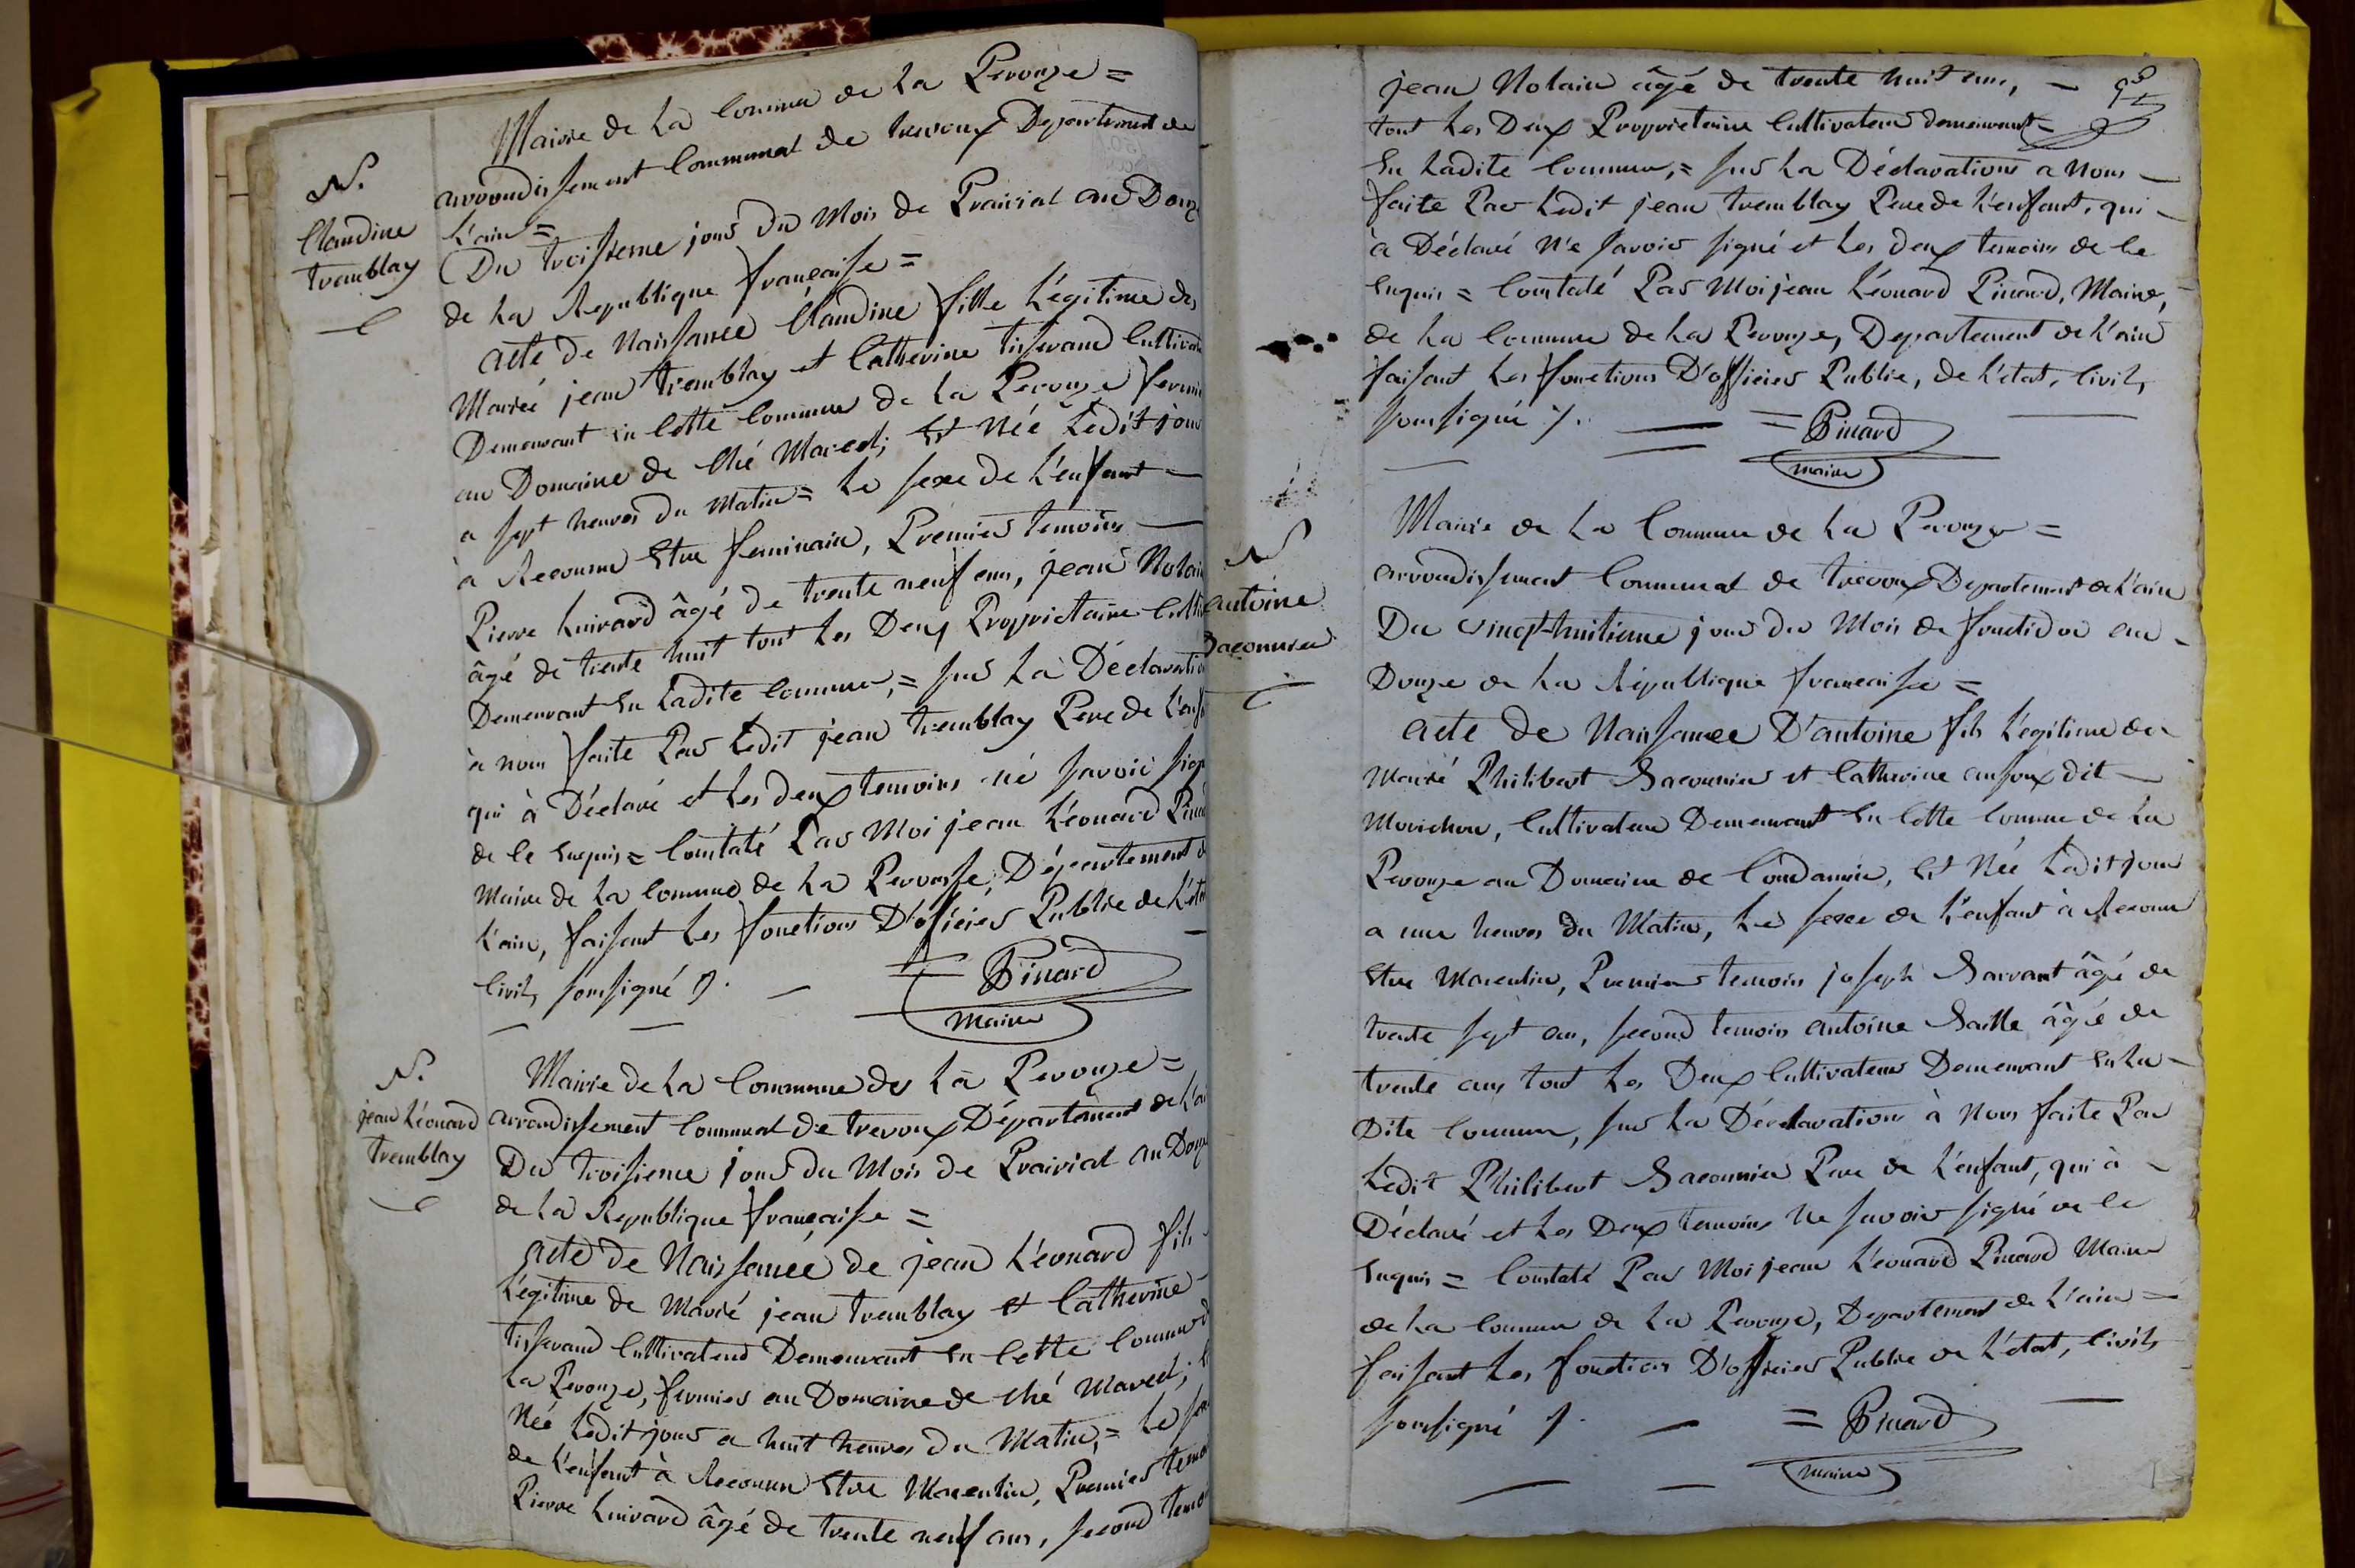 Mairie de La Commune de La Perouze =
arrondissement Communal de trevoux Departement de
L'ain =
N.
Claudine
tremblay
Du troisieme jour du Mois de Prairial an Douze
de La Republique française =
acte de Naissance Claudine fille Légitime de
Mariés jean tremblay et Catherine tisserand Cultivate
Demeurant En Cette Commune de La Perouze fermie
au Domaine de Ché Maret, Est Née Ledit jour
a sept heures du Matin = Le sexe de L'enfant —
à Reconnu Etre feminain, Premier temoins —
Pierre Luirard âgé de trente neuf ans, jean Nolain
âgé de trente huit tout Les Deux Proprietaire Culti
Demeurant En Ladite Commune, = sur La Déclaratio
à nous faite Par Ledit jean tremblay Pere de L'enf
qui à Déclaré et Les deux temoins né savoir sign
de Ce Enquis = Constaté Par Moi jean Léonard Pinard
Maire de La Commune de La Perousse, Département d
L'ain, faisant Les fonctions D'oficier Public de L'état
Civil, soussigné ./. — = Pinard
Maire
N.
jean Léonard
tremblay
Mairie de La Commune de La Perouze =
arrondissement Communal de trevoux Département de L'ai
Du troisieme jour du Mois de Prairial an Douze
de La Republique française =
acte de Naissance de jean Léonard fils
Légitime de Marié jean tremblay et Catherine
tisserand Cultivateur Demeurant En Cette Commune d
La Perouze, fermier au Domaine de Ché Maret,
Née Ledit jour a huit heures du Matin, = Le sex
de L'enfant à Reconnu Etre Masculin, Premier temo
Pierre Luirard âgé de trente neuf ans, second temoi
jean Nolain âgé de trente huit ans, —
tout Les Deux Proprietaire Cultivateur demeurant =
En Ladite Commune, = sur La Déclaration a Nous —
faite Par Ledit jean tremblay Pere de L'enfant, qui —
à Déclaré N'e savoir signé et Les deux temoins de Ce
Enquis = Constaté Par Moi jean Léonard Pinard, Maire,
de La Commune de La Perouze, Departement de L'ain
faisant Les fonctions D'officier Public, de L'état, Civil,
soussigné ./. — = Pinard
maire
N
antoine
Saconnier
Mairie de La Commune de La Perouze =
arrondissement Communal de trevoux Departement de L'ain
Du vingt-huitieme jour du Mois de fructidor an —
Douze de La République francaise =
acte de Naissance D'antoine fils Légitime de
Marié Philibert Saconnier et Catherine dit —
Morichon, Cultivateur Demeurant En Cette Commune de La
Perouze au Domaine de Condamin, Est Née Ledit jour
a une heures du Matin, Le sexe de L'enfant à Reconnu
Etre Masculin, Premier temoin joseph Sarvant âgé de
trente sept an, second temoin antoine Saille âgé de
trente ans tout Les Deux Cultivateur Demeurant En La —
Dite Commune, sur La Déclaration à Nous faite Par
Ledit Philibert Saconnier Pere de L'enfant, qui à —
Déclaré et Les Deux temoins Ne savoir signé de Ce
Enquis = Constaté Par Moi jean Léonard Pinard Maire
de La Commune de La Perouze, Departement de L'ain =
faisant Les fonction D'officier Public de L'état, Civil,
soussigné ./. — = Pinard
maire